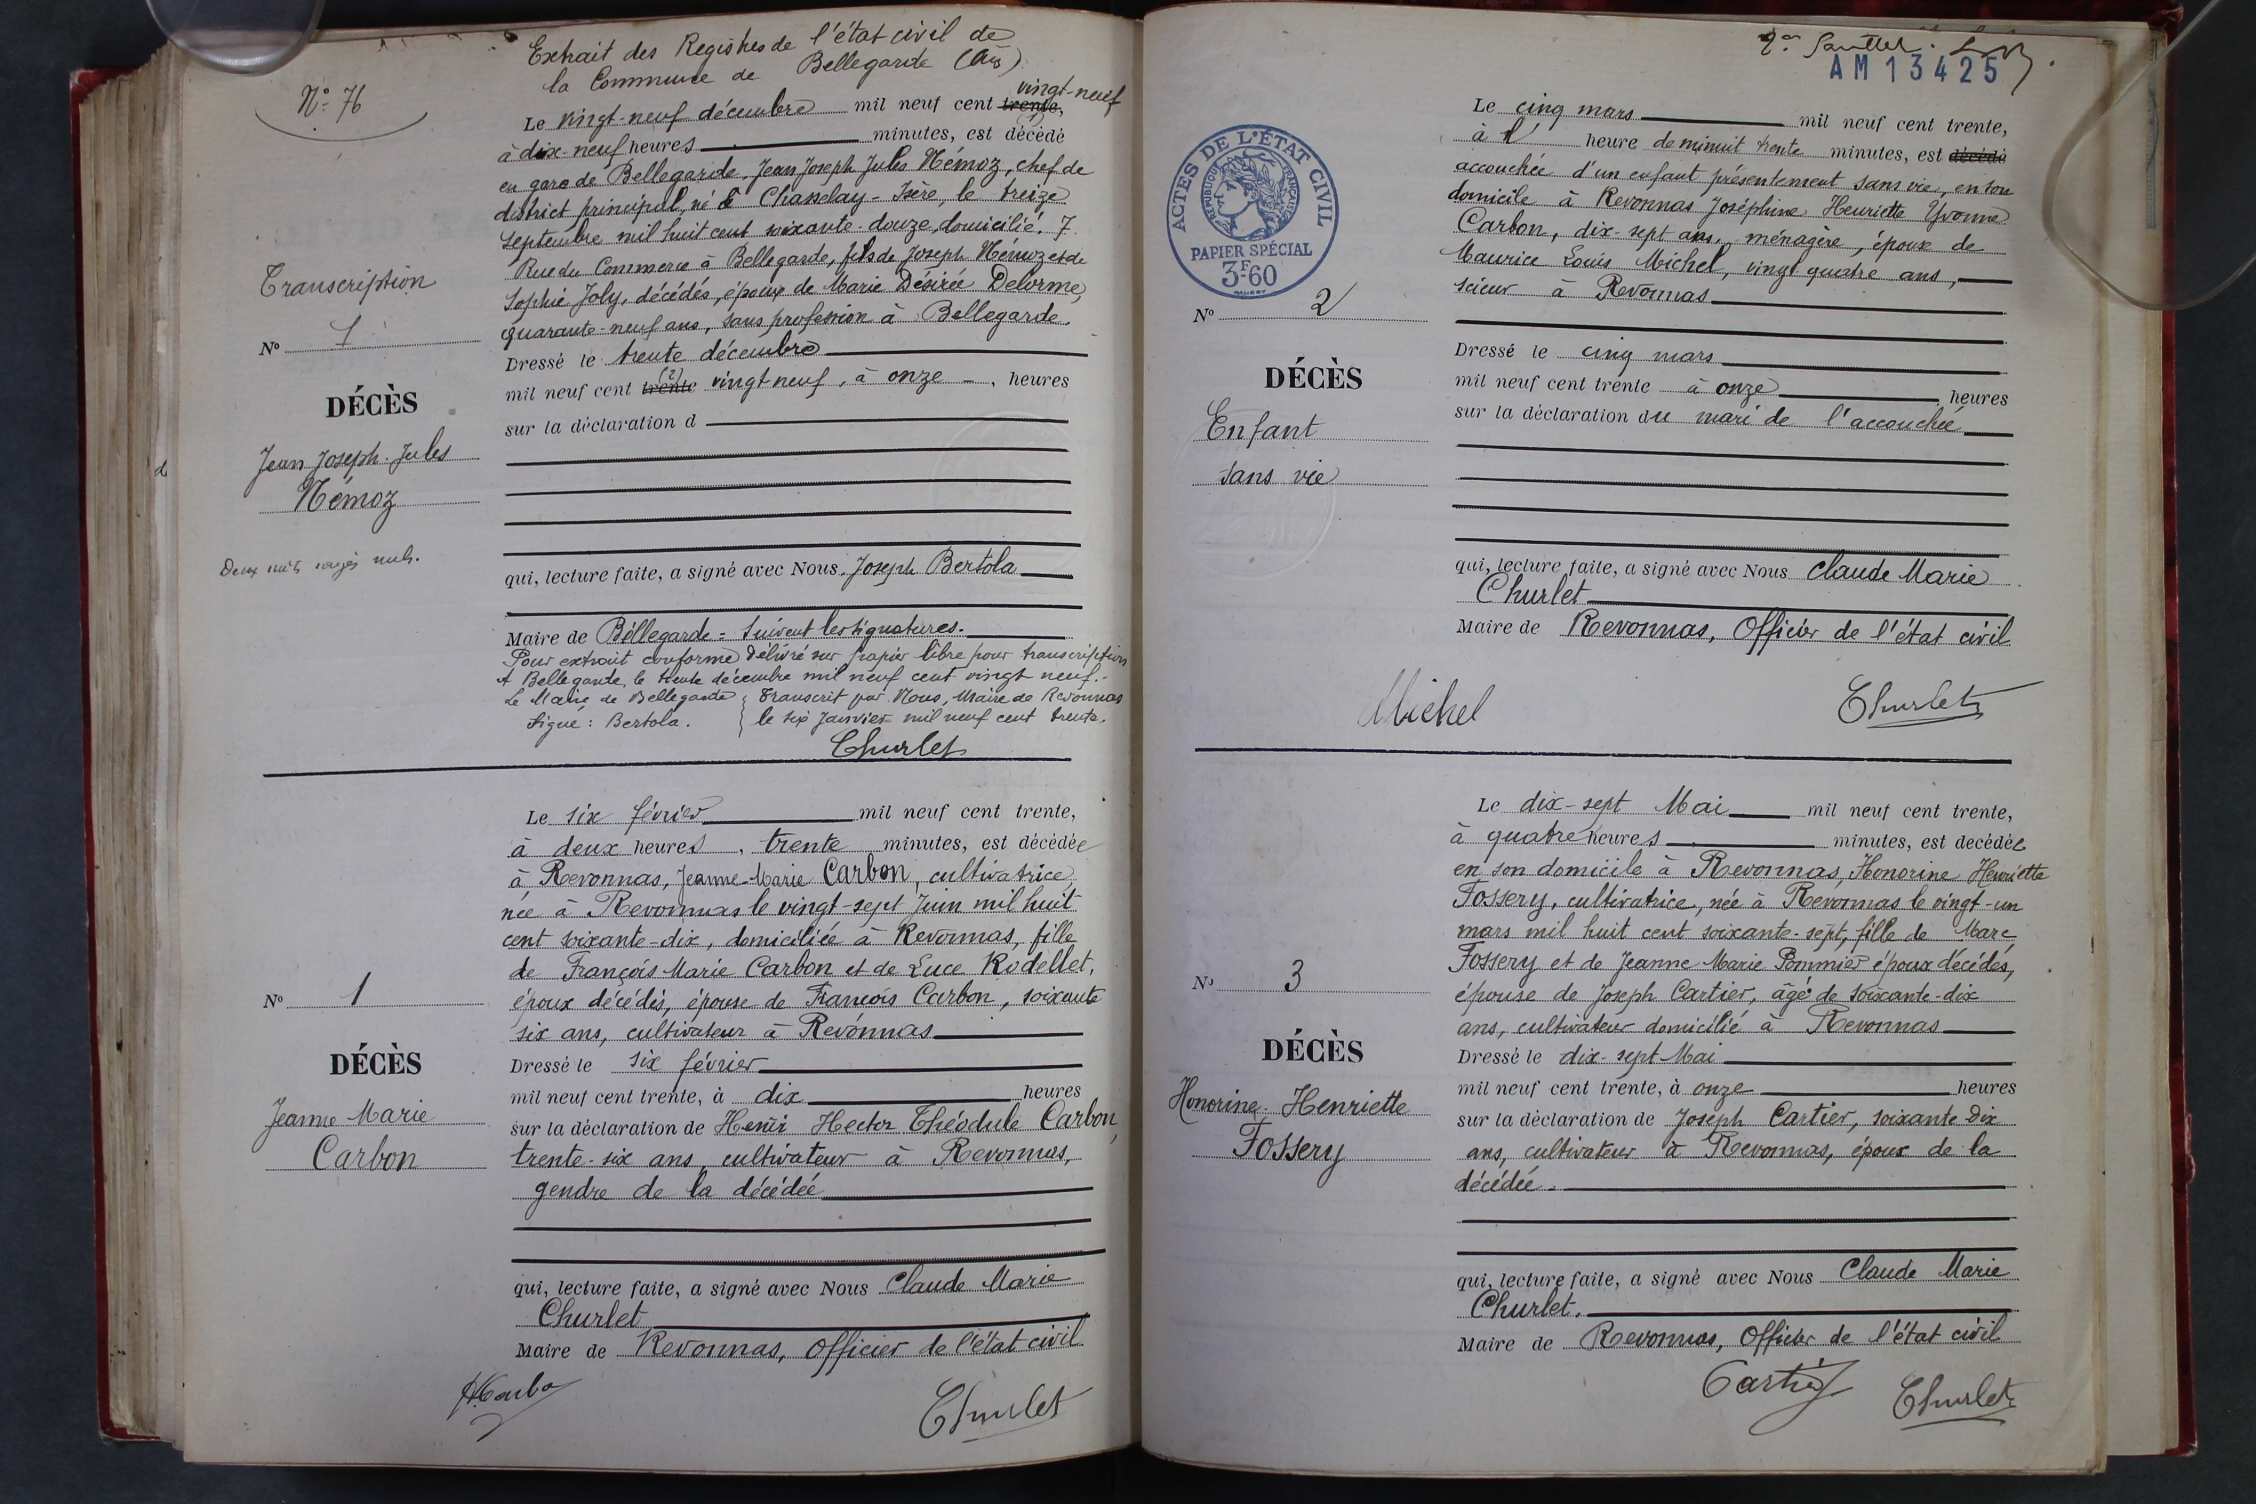 Extrait des Registres de l'état civil de
la Commune de Bellegarde (Ain)
N° 76
vingt-neuf
Le vingt-neuf décembre mil neuf cent trente,
à dix-neuf heures minutes, est décédé
en gare de Bellegarde, Jean Joseph Jules Némoz, chef de
district principal, né à Chasselay-Isère, le treize
septembre mil huit cent soixante-douze, domicilié, 7
Rue du Commerce à Bellegarde, fils de Joseph Némoz et de
Sophie Joly, décédés, époux de Marie Désirée Delorme,
quarante-neuf ans, sans profession à Bellegarde.
Transcription
N° 1
DÉCÈS
Jean Joseph-Jules
Némoz
Deux mots rayés nuls.
Dressé le trente décembre
mil neuf cent trente (2) vingt neuf, à onze heures
sur la déclaration d
qui, lecture faite, a signé avec Nous, Joseph Bertola
Maire de Bellegarde = Suivent les signatures.
Pour extrait conforme délivré sur papier libre pour transcription
A Bellegarde, le trente décembre mil neuf cent vingt neuf.
Le Maire de Bellegarde { Transcrit par Nous, Maire de Revonnas
Signé : Bertola. } le six Janvier mil neuf cent trente.
Churlet
Le six février mil neuf cent trente,
à deux heures, trente minutes, est décédée
à Revonnas, Jeanne-Marie Carbon, cultivatrice
née à Revonnas le vingt-sept Juin mil huit
cent soixante-dix, domiciliée à Revonnas, fille
de François Marie Carbon et de Luce Rodellet,
époux décédés, épouse de François Carbon, soixante
six ans, cultivateur à Revonnas
N° 1
DÉCÈS
Jeanne-Marie
Carbon
Dressé le six février
mil neuf cent trente, à dix heures
sur la déclaration de Henri Hector Théodule Carbon,
trente-six ans, cultivateur à Revonnas,
gendre de la décédée
qui, lecture faite, a signé avec Nous Claude Marie
Churlet
Maire de Revonnas, Officier de l'état civil
H Carbo
Churlet
AM 13425
ACTES DE L'ÉTAT CIVIL
RÉPUBLIQUE FRANÇAISE
PAPIER SPÉCIAL
3F60
Le cinq mars mil neuf cent trente,
à l' heure de minuit trente minutes, est décédé
accouchée d'un enfant présentement sans vie, en son
domicile à Revonnas Joséphine Henriette Yvonne
Carbon, dix-sept ans, ménagère, épouse de
Maurice Louis Michel, vingt quatre ans,
scieur à Revonnas
N° 2
DÉCÈS
Enfant
sans vie
Dressé le cinq mars
mil neuf cent trente à onze heures
sur la déclaration du mari de l'accouchée
qui, lecture faite, a signé avec Nous Claude Marie
Churlet
Maire de Revonnas, Officier de l'état civil
Michel
Churlet
Le dix-sept Mai mil neuf cent trente,
à quatre heures minutes, est decédée
en son domicile à Revonnas, Honorine Henriette
Fossery, cultivatrice, née à Revonnas le vingt-un
mars mil huit cent soixante-sept, fille de Marc
Fossery et de Jeanne Marie Pommier époux décédés,
épouse de Joseph Cartier, âgé de soixante-dix
ans, cultivateur domicilié à Revonnas
N° 3
DÉCÈS
Honorine Henriette
Fossery
Dressé le dix-sept Mai
mil neuf cent trente, à onze heures
sur la déclaration de Joseph Cartier, soixante Dix
ans, cultivateur à Revonnas, époux de la
décédée.
qui, lecture faite, a signé avec Nous Claude Marie
Churlet.
Maire de Revonnas, Officier de l'état civil
Cartier
Churlet